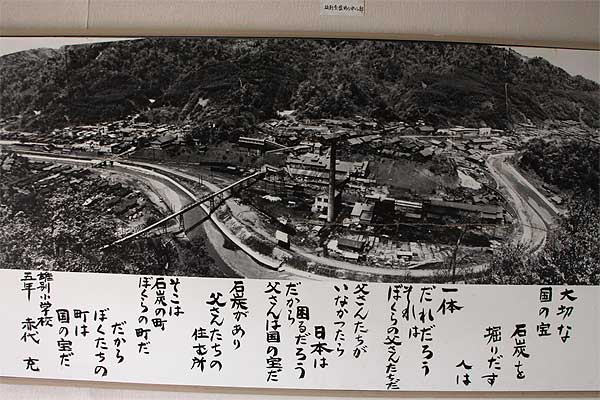 大切な
国の宝
石炭を
堀りだす
人は
一体
だれだろう
それは
ぼくらの父さんたちだ
父さんたちが
いなかったら
日本は
困るだろう
だから
父さんは国の宝だ
石炭があり
父さんたちの
住む所
そこは
石炭の町
ぼくらの町だ
だから
ぼくたちの
町は
国の宝だ
雄別小学校
五年 赤代 充